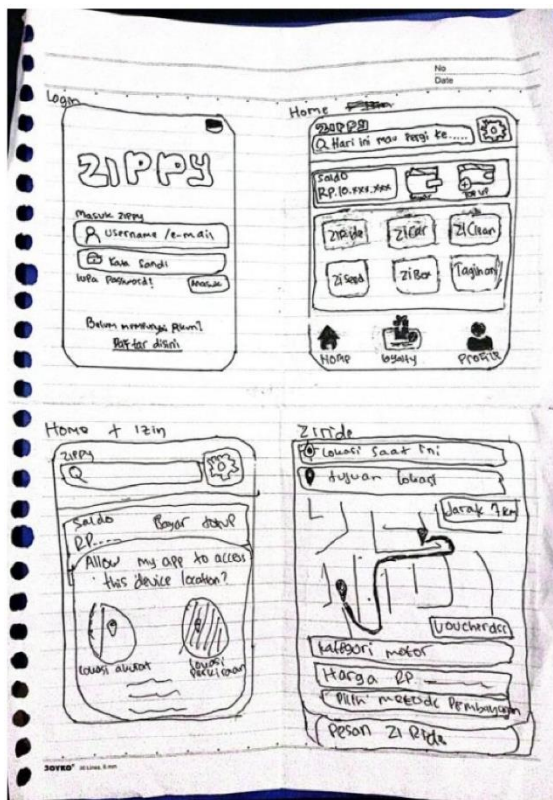 No
Date
Login
ZIPPY
Masuk Zippy
Username /e-mail
Kata Sandi
lupa Password!
Masuk
Belum mempunyai Akun?
Daftar disini
Home
ZIPPY
Hari ini mau Pergi ke.....
Saldo
RP.10.xxx.xxx
TOP UP
ZiRide
ZiCar
ZiClean
ZiSend
ZiBox
Tagihan
Home
loyalty
Profile
Home + izin
Zippy
Saldo
Bayar
RP.....
Allow my app to access
this device location?
Lokasi akurat
Lokasi
Perkiraan
Ziride
Lokasi saat ini
tujuan lokasi
Jarak 7 km
Voucher
Kategori motor
Harga RP.
Pilih metode Pembayaran
Pesan Zi Ride
JOYKO